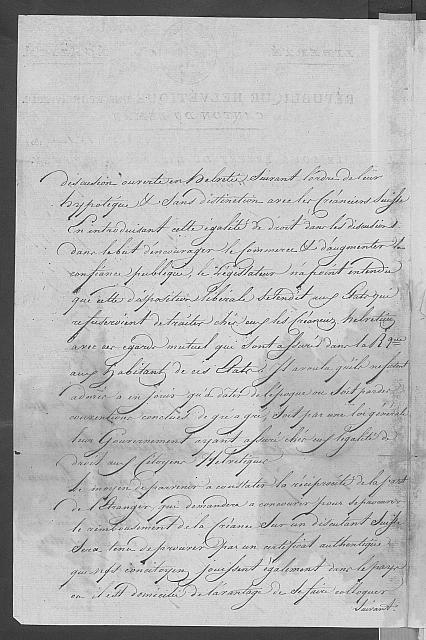 discussion ouverte en Helvetie, Suivant l'ordre de leur
hypotéque & Sans distinction avec les Créanciers Suisse
En introduisant cette égalité de droit dans les discussions
dans le but d'encourager le Commerce & d'augmenter la
confiance publique, le Législateur n'a point entendu
que cette disposition libérale s'etendit aux Etats qui
refuseroient de traiter chés eux les Créanciers helvétiens
avec ces égards mutuel qui sont assurés dans la R.que
aux habitant de ces Etats; Il arreta qu'ils ne fussent
admis a en jouir qu'à dater de l'époque ou soit par des
conventions conclues de gré a gré, soit par une loi générale
leur Gouvernement ayant assuré chés eux l'égalité de
droit aux Citoyens Helvetiques.
Le moyen de parvenir a constater la réciprocité de la part
de l'Etranger, qui demandera a concourir pour se procurer
le remboursement de la Créance Sur un discutant Suisse
Sera tenu de prouver par un certificat authentique
que nos concitoyens jouissent également dans le pays
ou il est domicilié de l'avantage de se faire colloquer
Suivant